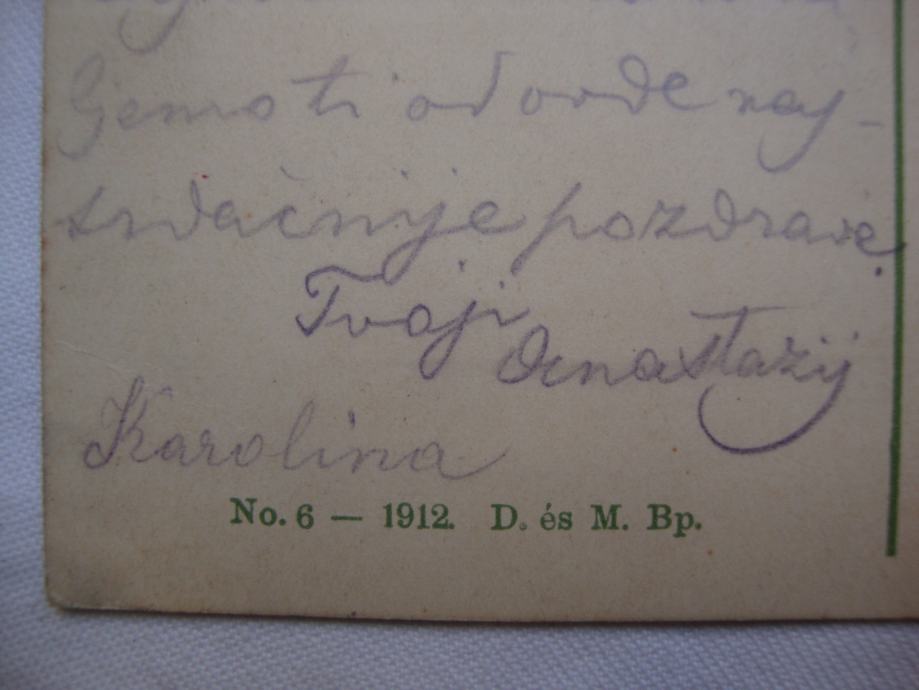 ljemo ti od ovde naj-
srdačnije pozdrave.
Tvoji
Anastazij
Karolina
No. 6 — 1912. D. és M. Bp.